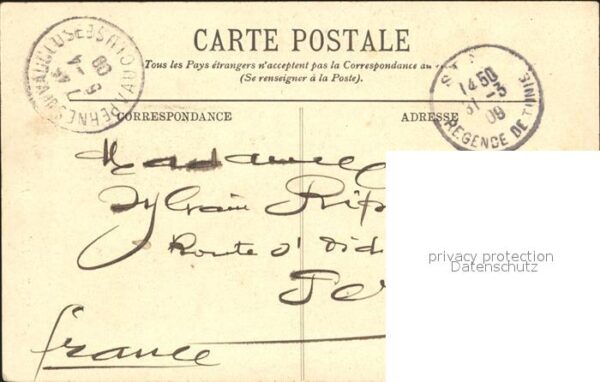 CARTE POSTALE
Tous les Pays étrangers n'acceptent pas la Correspondance au
(Se renseigner à la Poste).
CORRESPONDANCE
ADRESSE
14 50
31 -3
09
REGENCE DE TUNIS
VAUCLUSE
5 -4
09
Madame
Sylvain
Route d'
France
privacy protection
Datenschutz